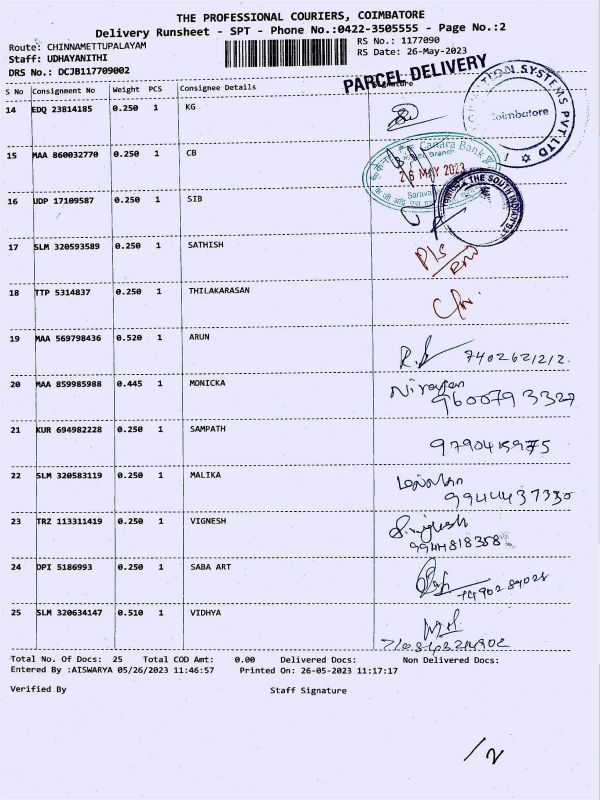 THE PROFESSIONAL COURIERS, COIMBATORE
Delivery Runsheet - SPT - Phone No.:0422-3505555 - Page No.:2
Route: CHINNAMETTUPALAYAM
RS No.: 1177090
Staff: UDHAYANITHI
RS Date: 26-May-2023
DRS No.: DCJB117709002
PARCEL DELIVERY
S No Consignment No Weight PCS Consignee Details Signature
14 EDQ 23814185 0.250 1 KG
SYSTEMS PVT. LTD
Coimbatore
15 MAA 860032770 0.250 1 CB
Canara Bank
Branch
26 MAY 2023
16 UDP 17109587 0.250 1 SIB
THE SOUTH INDIAN
17 SLM 320593589 0.250 1 SATHISH
18 TTP 5314837 0.250 1 THILAKARASAN
19 MAA 569798436 0.520 1 ARUN
20 MAA 859985988 0.445 1 MONICKA
9600793327
21 KUR 694982228 0.250 1 SAMPATH
9790415975
22 SLM 320583119 0.250 1 MALIKA
9944437330
23 TRZ 113311419 0.250 1 VIGNESH
9944818358
24 DPI 5186993 0.250 1 SABA ART
25 SLM 320634147 0.510 1 VIDHYA
Total No. Of Docs: 25 Total COD Amt: 0.00 Delivered Docs: Non Delivered Docs:
Entered By :AISWARYA 05/26/2023 11:46:57 Printed On: 26-05-2023 11:17:17
Verified By Staff Signature
/2